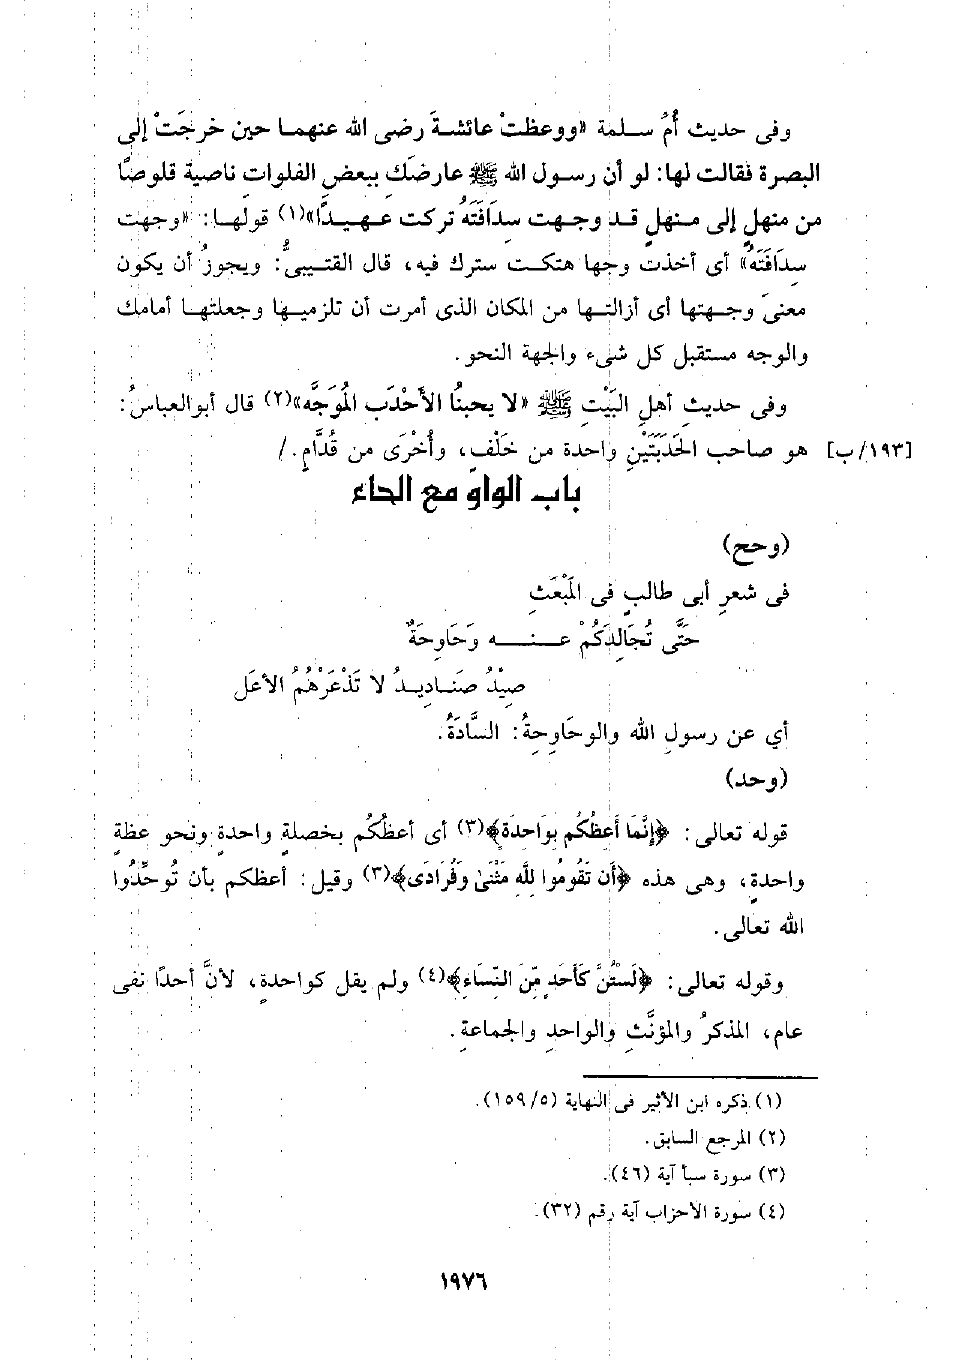 وفى حديث أُمُ سلمة «ووعظتْ عائشةَ رضى الله عنهما حين خرجَتْ إلى
البصرة فقالت لها: لو أن رسول الله ﷺ عارضَكِ ببعضِ الفلوات ناصية قلوصًا
من منهلٍ إلى منهلٍ قد وجهت سدَافَتَهُ تركت عهيدًا»(١) قولها: «وجهت
سِدَافَتَهُ» أى أخذت وجها هتكت سترك فيه، قال القتيبىُّ: ويجوزُ أن يكون
معنىَ وجهتها أى أزالتها من المكان الذى أمرت أن تلزميها وجعلتها أمامك
والوجه مستقبل كل شىء والجهة النحو.
وفى حديثِ أهلِ البَيْتِ ﷺ «لا يحبنُا الأَحْدَب المُوَجَّه»(٢) قال أبوالعباسُ:
[١٩٣/ب] هو صاحب الحَدَبَتَيْنِ واحدة من خَلْفٍ، وأُخْرَى من قُدَّامٍ./
باب الواو مع الحاء
(وحح)
فى شعرِ أبى طالبٍ فى المَبْعَثِ
حَتَّى تُجَالِدَكُمْ عنه وَحَاوِحَةٌ
صِيْدُ صَنَادِيدُ لا تَذْعَرْهُمُ الأعَل
أي عن رسولِ الله والوحَاوِحِةُ: السَّادَةُ.
(وحد)
قوله تعالى: ﴿إِنَّمَا أَعِظُكُم بِوَاحِدَةٍ﴾(٣) أى أعظُكُم بخصلةٍ واحدةٍ ونحو عظةٍ
واحدةٍ، وهى هذه ﴿أَن تَقُومُوا لِلَّهِ مَثْنَىٰ وَفُرَادَى﴾(٣) وقيل: أعظكم بأن تُوحِّدُوا
الله تعالى.
وقوله تعالى: ﴿لَسْتُنَّ كَأَحَدٍ مِّنَ النِّسَاءِ﴾(٤) ولم يقل كواحدةٍ، لأنَّ أحدًا نفى
عام، المذكرُ والمؤنَّثِ والواحدِ والجماعةِ.
(١) ذكره ابن الأثير فى النهاية (١٥٩/٥).
(٢) المرجع السابق.
(٣) سورة سبأ آية (٤٦).
(٤) سورة الأحزاب آية رقم (٣٢).
١٩٧٦